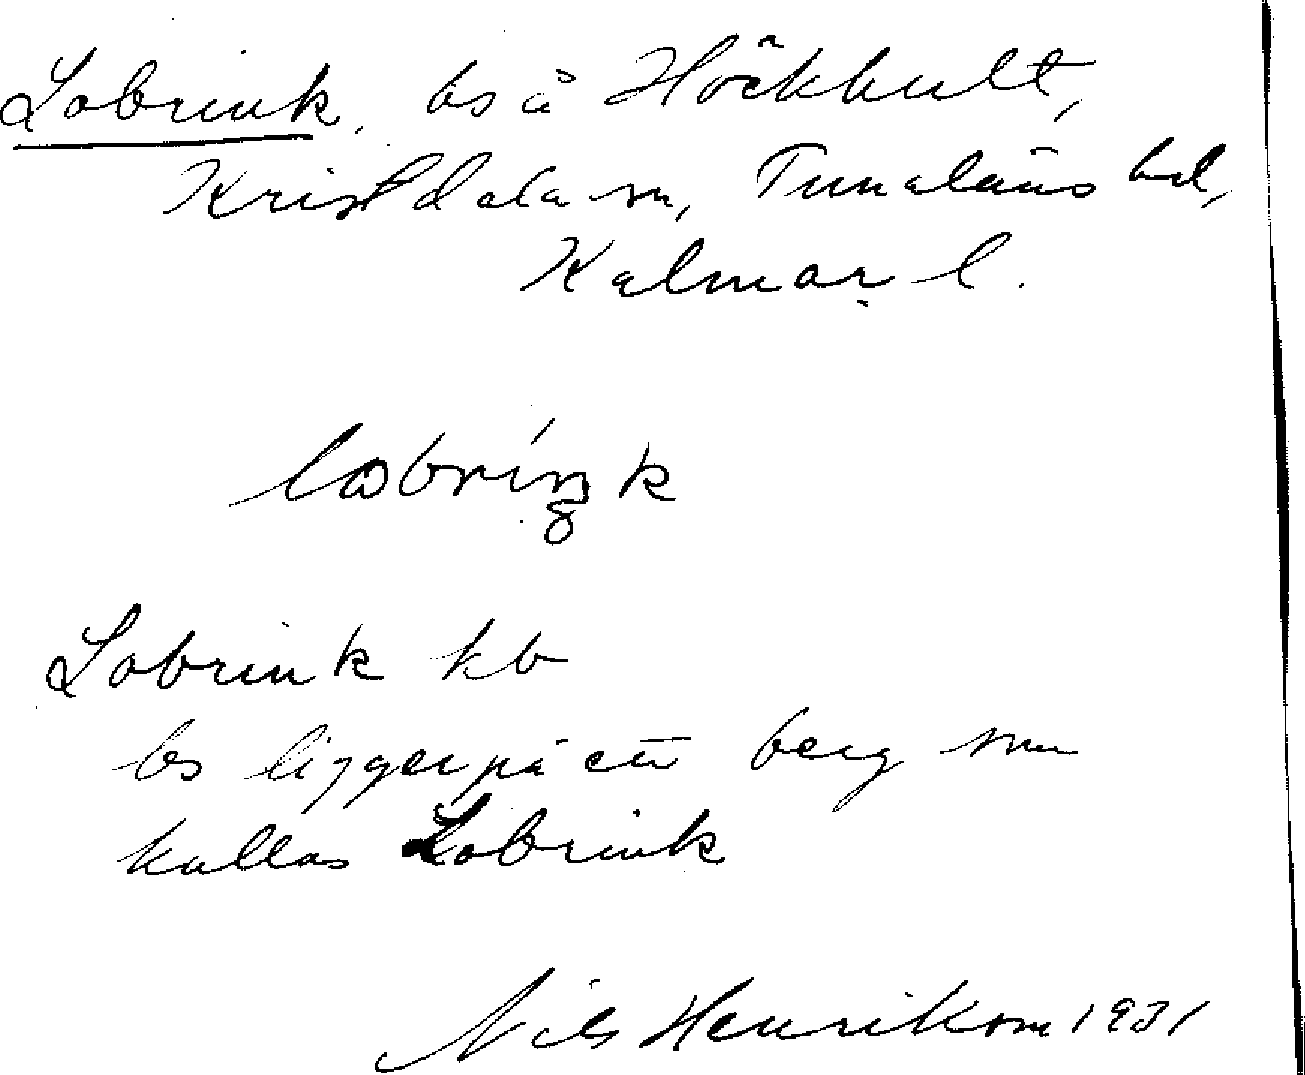 Lobrink, bs å Höckhult,
Kristdala sn, Tunaläns hd,
Kalmar l.
Lobrink kb
bs ligger på ett berg som
kallas Lobrink
Nils Henrikson 1931